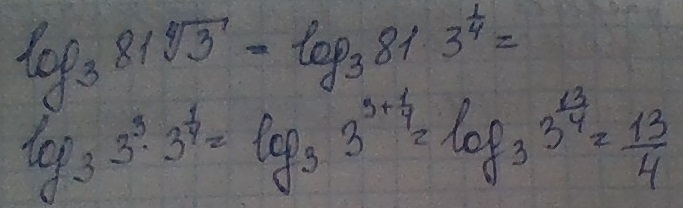 log₃ 81 ∜3 = log₃ 81 · 3^{1/4} =
log₃ 3³ · 3^{1/4} = log₃ 3^{3+1/4} = log₃ 3^{13/4} = 13/4